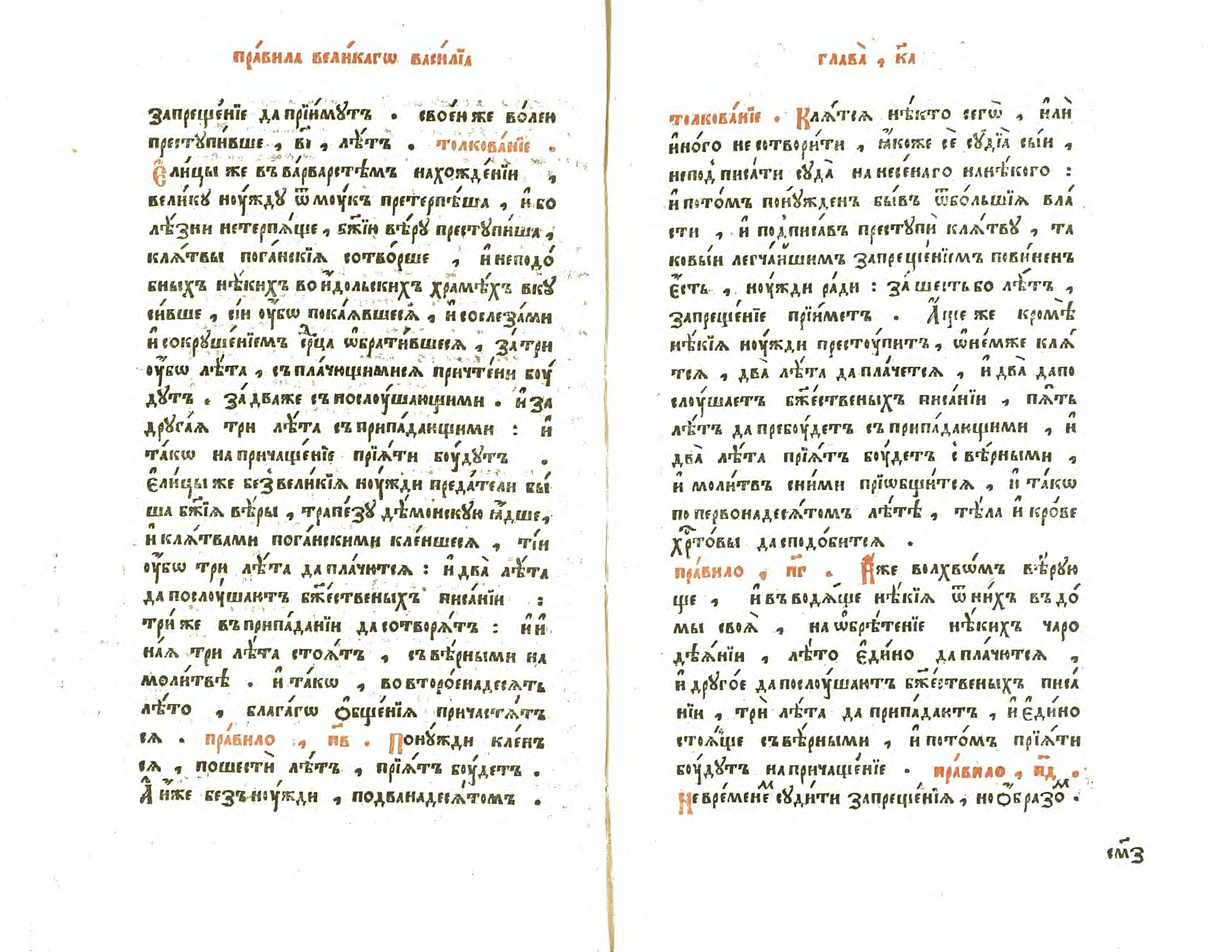 пра́вила вели́кагѡ васи́лїа
запреще́нїе да прїи́мꙋтъ . свое́ю же во́лею
престꙋпи́вше , в҃і , лѣ́тъ . толкова́нїе .
Е҆ли́цы же въ ва́рварстѣмъ нахожде́нїи ,
вели́кꙋ ноу́ждꙋ ѿ моу́къ претерпѣ́ша , и҆ бо
лѣ́зни нетерпѧ́ще , бж҃їю вѣ́рꙋ престꙋпи́ша ,
клѧ́твы пога́нскїѧ сотво́рше , и҆ неподо́
бныхъ нѣ́кихъ во и҆́дольскихъ хра́мѣхъ вкꙋ
си́вше , сїѝ оу҆́бѡ пока́ѧвшесѧ , и҆ со слеза́ми
и҆ сокрꙋше́нїемъ ср҃ца ѡ҆брати́вшесѧ , за́ три
оу҆́бѡ лѣ́та , съ пла́чющимисѧ причте́ни боу́
дꙋтъ . за́ два же съ послоу́шающими . и҆ за
дрꙋга́ѧ три лѣ́та съ припа́дающими : и҆
та́кѡ на причаще́нїе прїѧ́ти боу́дꙋтъ .
Е҆ли́цы же без вели́кїѧ ноу́жди преда́тели бы́
ша бж҃їѧ вѣ́ры , трапе́зꙋ де́монскꙋю ꙗ҆́дше ,
и҆ клѧ́твами пога́нскими кле́ншесѧ , тїѝ
оу҆́бѡ три лѣ́та да пла́чютсѧ : и҆ два̀ лѣ́та
да послоу́шаютъ бж҃е́ственыхъ писа́нїи :
три́ же въ припа́данїи да сотворѧ́тъ : и҆ и҆
на́ѧ три лѣ́та стоѧ́тъ , съ вѣ́рными на
моли́твѣ . и҆ та́кѡ , во второ́е на́десѧть
лѣ́то , блага́гѡ ѻ҆бще́нїѧ причастѧ́т
сѧ . пра́вило , п҃в . По ноу́жди кле́нъ
сѧ , по шестѝ лѣ́тъ , прїѧ́тъ боу́детъ .
А҆ и҆́же безъ ноу́жди , по двана́десѧтомъ .
глава̀ , к҃а
толкова́нїе . Клѧ́тсѧ нѣ́кто сего̀ , и҆лѝ
и҆но́го не сотвори́ти , ꙗ҆́коже сѐ сꙋдїа̀ сы́и ,
неподписа́ти сꙋда̀ нанесе́наго на нѣ́кого :
и҆ пото́мъ понꙋ́жденъ бы́въ ѿ бо́льшїѧ вла́
сти , и҆ подписа́въ престꙋпѝ клѧ́твꙋ , та
ковы́и легча́ишимъ запреще́нїемъ пови́ненъ
е҆́сть , ноу́жди ра́ди : за́ шесть бо лѣ́тъ ,
запреще́нїе прїи́метъ . А҆́ще же кромѣ̀
нѣ́кїѧ ноу́жди престоу́питъ , ѡ҆ не́мже клѧ́
тсѧ , два̀ лѣ́та да пла́четсѧ , и҆ два̀ да по
слоу́шаетъ бж҃е́ственыхъ писа́нїи , пѧ́ть
лѣ́тъ да пребоу́детъ съ припа́дающими , и҆
два̀ лѣ́та прїѧ́тъ боу́детъ с вѣ́рными ,
и҆ моли́твъ с ни́ми прїѡбщи́тсѧ , и҆ та́кѡ
по первонадесѧ́томъ лѣ́тѣ , тѣ́ла и҆ кро́ве
хр҃то́вы да сподо́битсѧ .
пра́вило , п҃г . И҆́же волхвѡ́мъ вѣ́рꙋю
ще , и҆ въводѧ́ще нѣ́кїѧ ѿ ни́хъ въ до́
мы своѧ̀ , на ѡ҆брѣ́тенїе нѣ́кихъ чаро
дѣ́ѧнїи , лѣ́то е҆ди́но да пла́чютсѧ ,
и҆ дрꙋго́е да послоу́шаютъ бж҃е́ственыхъ писа́
нїи , трѝ лѣ́та да припа́даютъ , и҆ е҆ди́но
стоѧ́ще съ вѣ́рными , и҆ пото́мъ прїѧ́ти
боу́дꙋтъ на причаще́нїе . пра́вило , п҃д .
Не вре́менемъ сꙋди́ти запреще́нїѧ , но ѻ҆́бразом .
см҃з